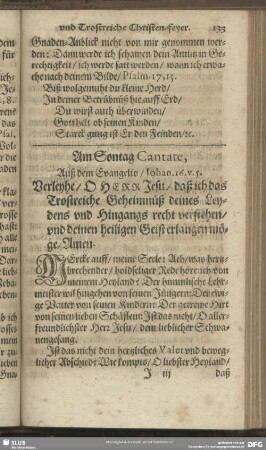 und Trostreiche Christen-feyer. 133
Gnaden-Anblick nicht von mir genommen wer-
den: Dann werde ich schawen dein Antlitz in Ge-
rechtigkeit / ich werde satt werden / wann ich erwa-
che nach deinem Bilde / Psalm. 17, 15.
Biß wolgemuht du kleine Herd /
In deiner Betrübnüß hie auff Erd /
Du wirst auch überwinden /
Gott helt ob seinen Kinden /
Starck gnug ist Er den Feinden / ꝛc.
Am Sontag Cantate,
Auß dem Evangelio / Johan. 16. v. 5.
Verleyhe / O HERR Jesu / daß ich das
Trostreiche Geheimnüß deines Ley-
dens vnd Hingangs recht verstehen /
vnd deinen heiligen Geist erlangen mö-
ge. Amen.
MErcke auff / meine Seele: Ach / was hertz-
brechender / holdseliger Rede höre ich von
meinem Heyland? Der himmlische Lehr-
meister wil hingehen von seinen Jüngern: Der ewi-
ge Vatter von seinen Kindern: Der getrewe Hirt
von seinen lieben Schäflein: Ist das nicht / O aller-
freundlichster Herr Jesu / dein lieblicher Schwa-
nengesang.
Ist das nicht dein hertzliches Valet vnd beweg-
licher Abschied? Wie kompts / O liebster Heyland /
J iij daß